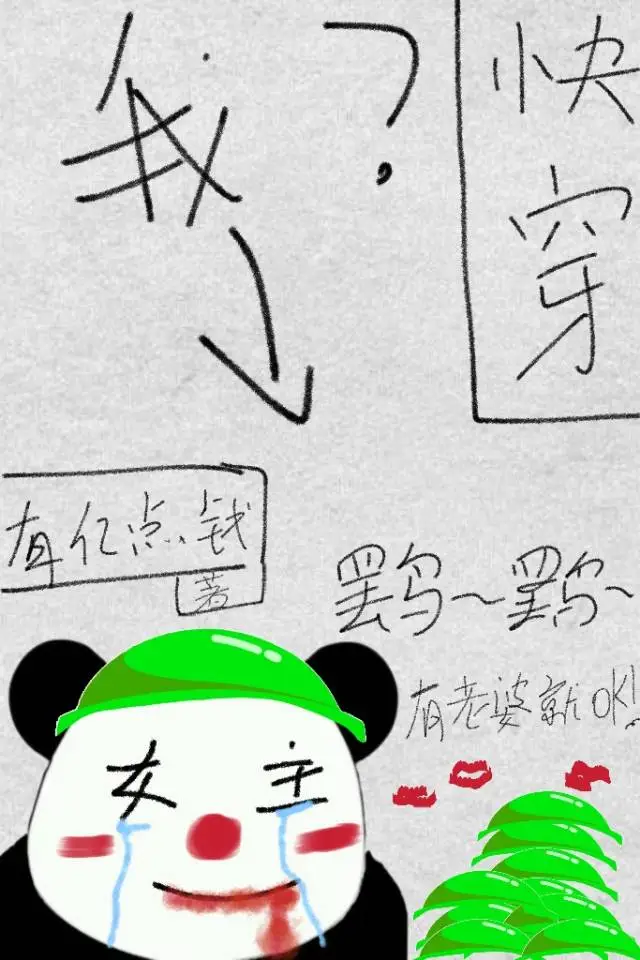 我?
快穿
有亿点钱
著
罢鸟~罢鸟~
有老婆就OK!
女主